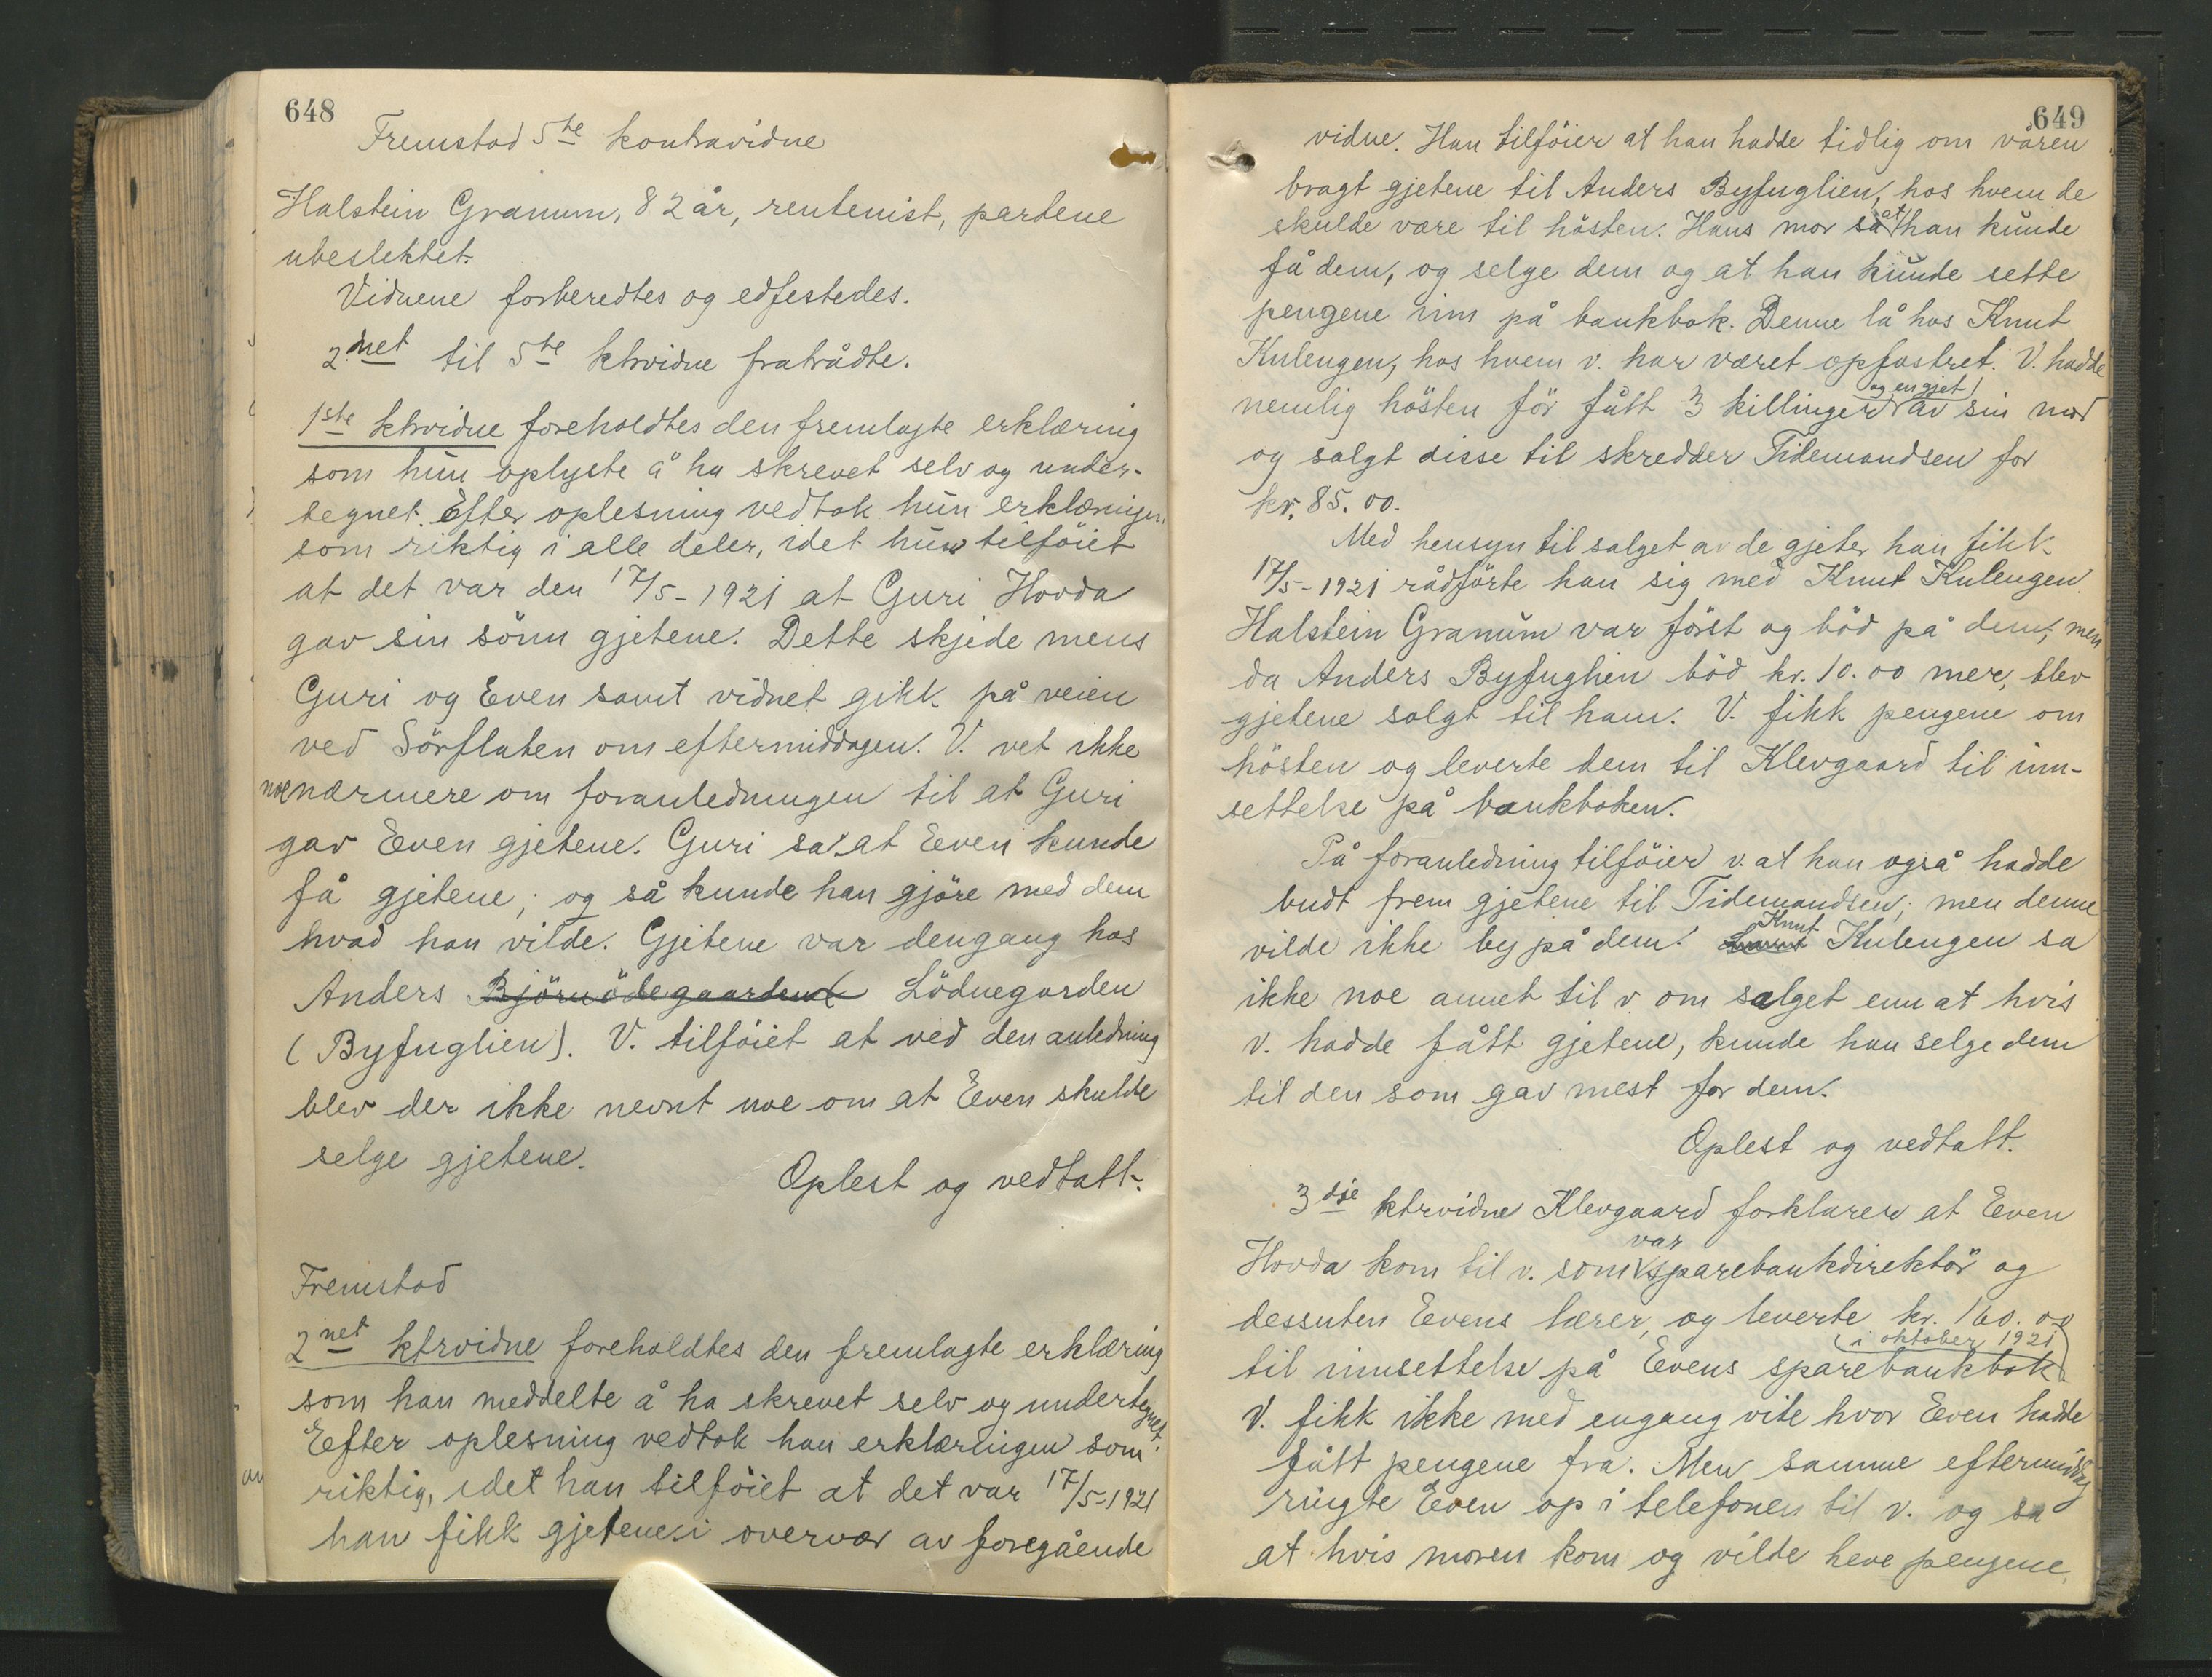 648
Fremstod 5te kontravidne
Halstein Granum, 82 år, rentenist, partene
ubeslektet.
Vidnene forberedtes og edfestedes.
2net til 5te ktrvidne fratrådte.
1ste ktrvidne foreholdtes den fremlagte erklæring
som hun oplyste å ha skrevet selv og under-
tegnet. Efter oplesning vedtok hun erklæringen
som riktig i alle deler, idet hun tilföiet
at det var den 17/5-1921 at Guri Hovda
gav sin sönn gjetene. Dette skjede mens
Guri og Even samt vidnet gikk på veien
ved Sörflaten om eftermiddagen. V. vet ikke
noe nærmere om foranledningen til at Guri
gav Even gjetene. Guri sa at Even kunde
få gjetene; og så kunde han gjöre med dem
hvad han vilde. Gjetene var dengang hos
Anders Björnödegaarden Lödnegarden
(Byfuglien). V. tilföiet at ved den anledning
blev der ikke nevnt noe om at Even skulde
selge gjetene.
Oplest og vedtatt.
Fremstod
2net ktrvidne foreholdtes den fremlagte erklæring
som han meddelte å ha skrevet selv og undertegnet.
Efter oplesning vedtok han erklæringen som
riktig, idet han tilföiet at det var 17/5-1921
han fikk gjetene i overvær av foregående
649
vidne. Han tilföier at han hadde tidlig om våren
bragt gjetene til Anders Byfuglien, hos hvem de
skulde være til hösten. Hans mor sa at han kunde
få dem, og selge dem og at han kunde sette
pengene inn på bankbok. Denne lå hos Knut
Kulengen, hos hvem v. har været opfostret. V. hadde
nemlig hösten för fått 3 killinger og en gjet av sin mor
og solgt disse til skredder Tidemandsen for
kr. 85.00.
Med hensyn til salget av de gjeter han fikk
17/5-1921 rådförte han sig med Knut Kulengen.
Halstein Granum var först og böd på dem, men
da Anders Byfuglien böd kr. 10.00 mer, blev
gjetene solgt til ham. V. fikk pengene om
hösten og leverte dem til Klevgaard til inn-
settelse på bankboken.
På foranledning tilföier v. at han også hadde
budt frem gjetene til Tidemandsen; men denne
vilde ikke by på dem. Knut Kulengen sa
ikke noe annet til v. om salget enn at hvis
v. hadde fått gjetene, kunde han selge dem
til den som gav mest for dem.
Oplest og vedtatt.
3dje ktrvidne Klevgaard forklarer at Even
Hovda kom til v. som var sparebankdirektör og
dessuten Evens lærer, og leverte kr. 160.00
til innsettelse på Evens sparebankbok (i oktober 1921)
V. fikk ikke med engang vite hvor Even hadde
fått pengene fra. Men samme eftermiddag
ringte Even op i telefonen til v. og sa
at hvis moren kom og vilde heve pengene